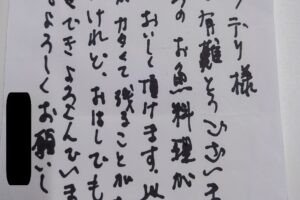 テリ様
有難とうございま
のお魚料理が
おいしく頂けます。以
カタくて残ることが
けれど、おはしでも
できよろこんでいま
よろしくお願いし